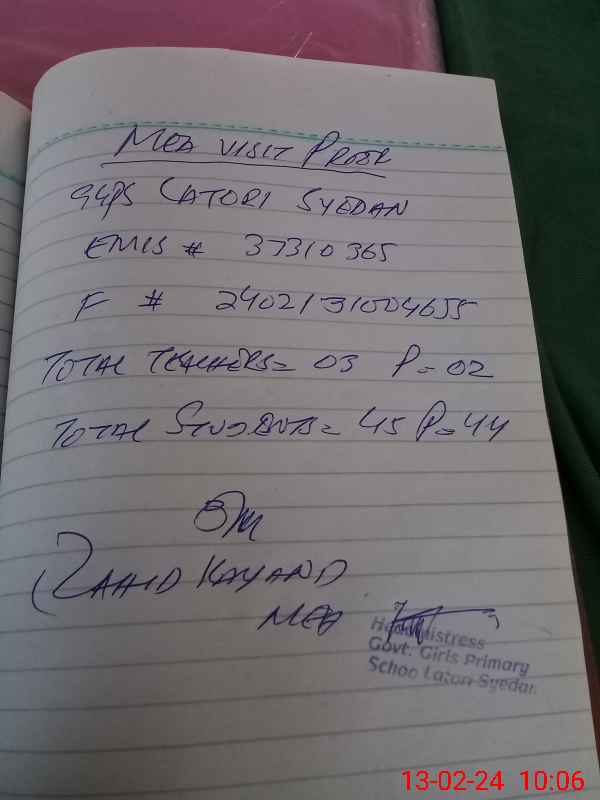 MEA VISIT PROOF
GGPS LATORI SYEDAN
EMIS # 37310365
F # 2402131004655
TOTAL TEACHERS= 03 P= 02
TOTAL STUDENTS= 45 P=44
ZAHID KAYANI
MEA
Headmistress
Govt. Girls Primary
Schoo Latori Syedan
13-02-24 10:06